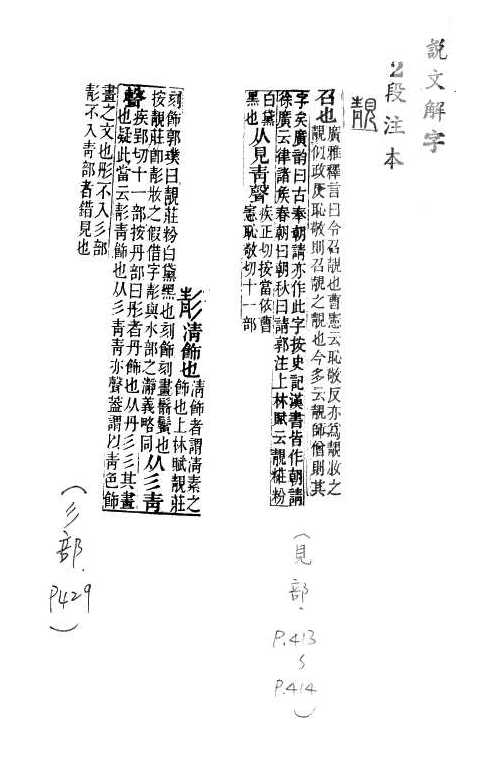 説文解字
2段注本
靚
召也廣雅釋言曰令召靚也曹憲云恥敬反亦為靚妝之
靚似政反恥敬則召靚之靚也今多云靚師僧則其
字矣廣韵曰古奉朝請亦作此字按史記漢書皆作朝請
徐廣云律諸矦春朝曰朝秋曰請郭注上林賦云靚糚粉
白黛
黑也从見靑聲疾正切按當依曹
憲恥敬切十一部
(見部.
P.413
P.414)
彰淸飾也淸飾者謂淸素之
飾也上林賦靚莊
刻飾郭璞曰靚莊粉白黛黑也刻飾刻畫鬋鬢也
按靚莊卽彰妝之假借字彰與水部之瀞義略同从彡靑
聲疾郢切十一部按丹部曰彤者丹飾也从丹彡彡其畫
也疑此當云彰靑飾也从彡靑靑亦聲葢謂以靑色飾
畫之文也彤不入彡部
彰不入靑部者錯見也
(彡部.
P429)